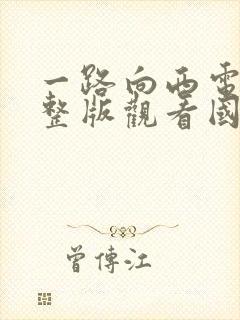 一路向西電
整版觀看國
曾傳江